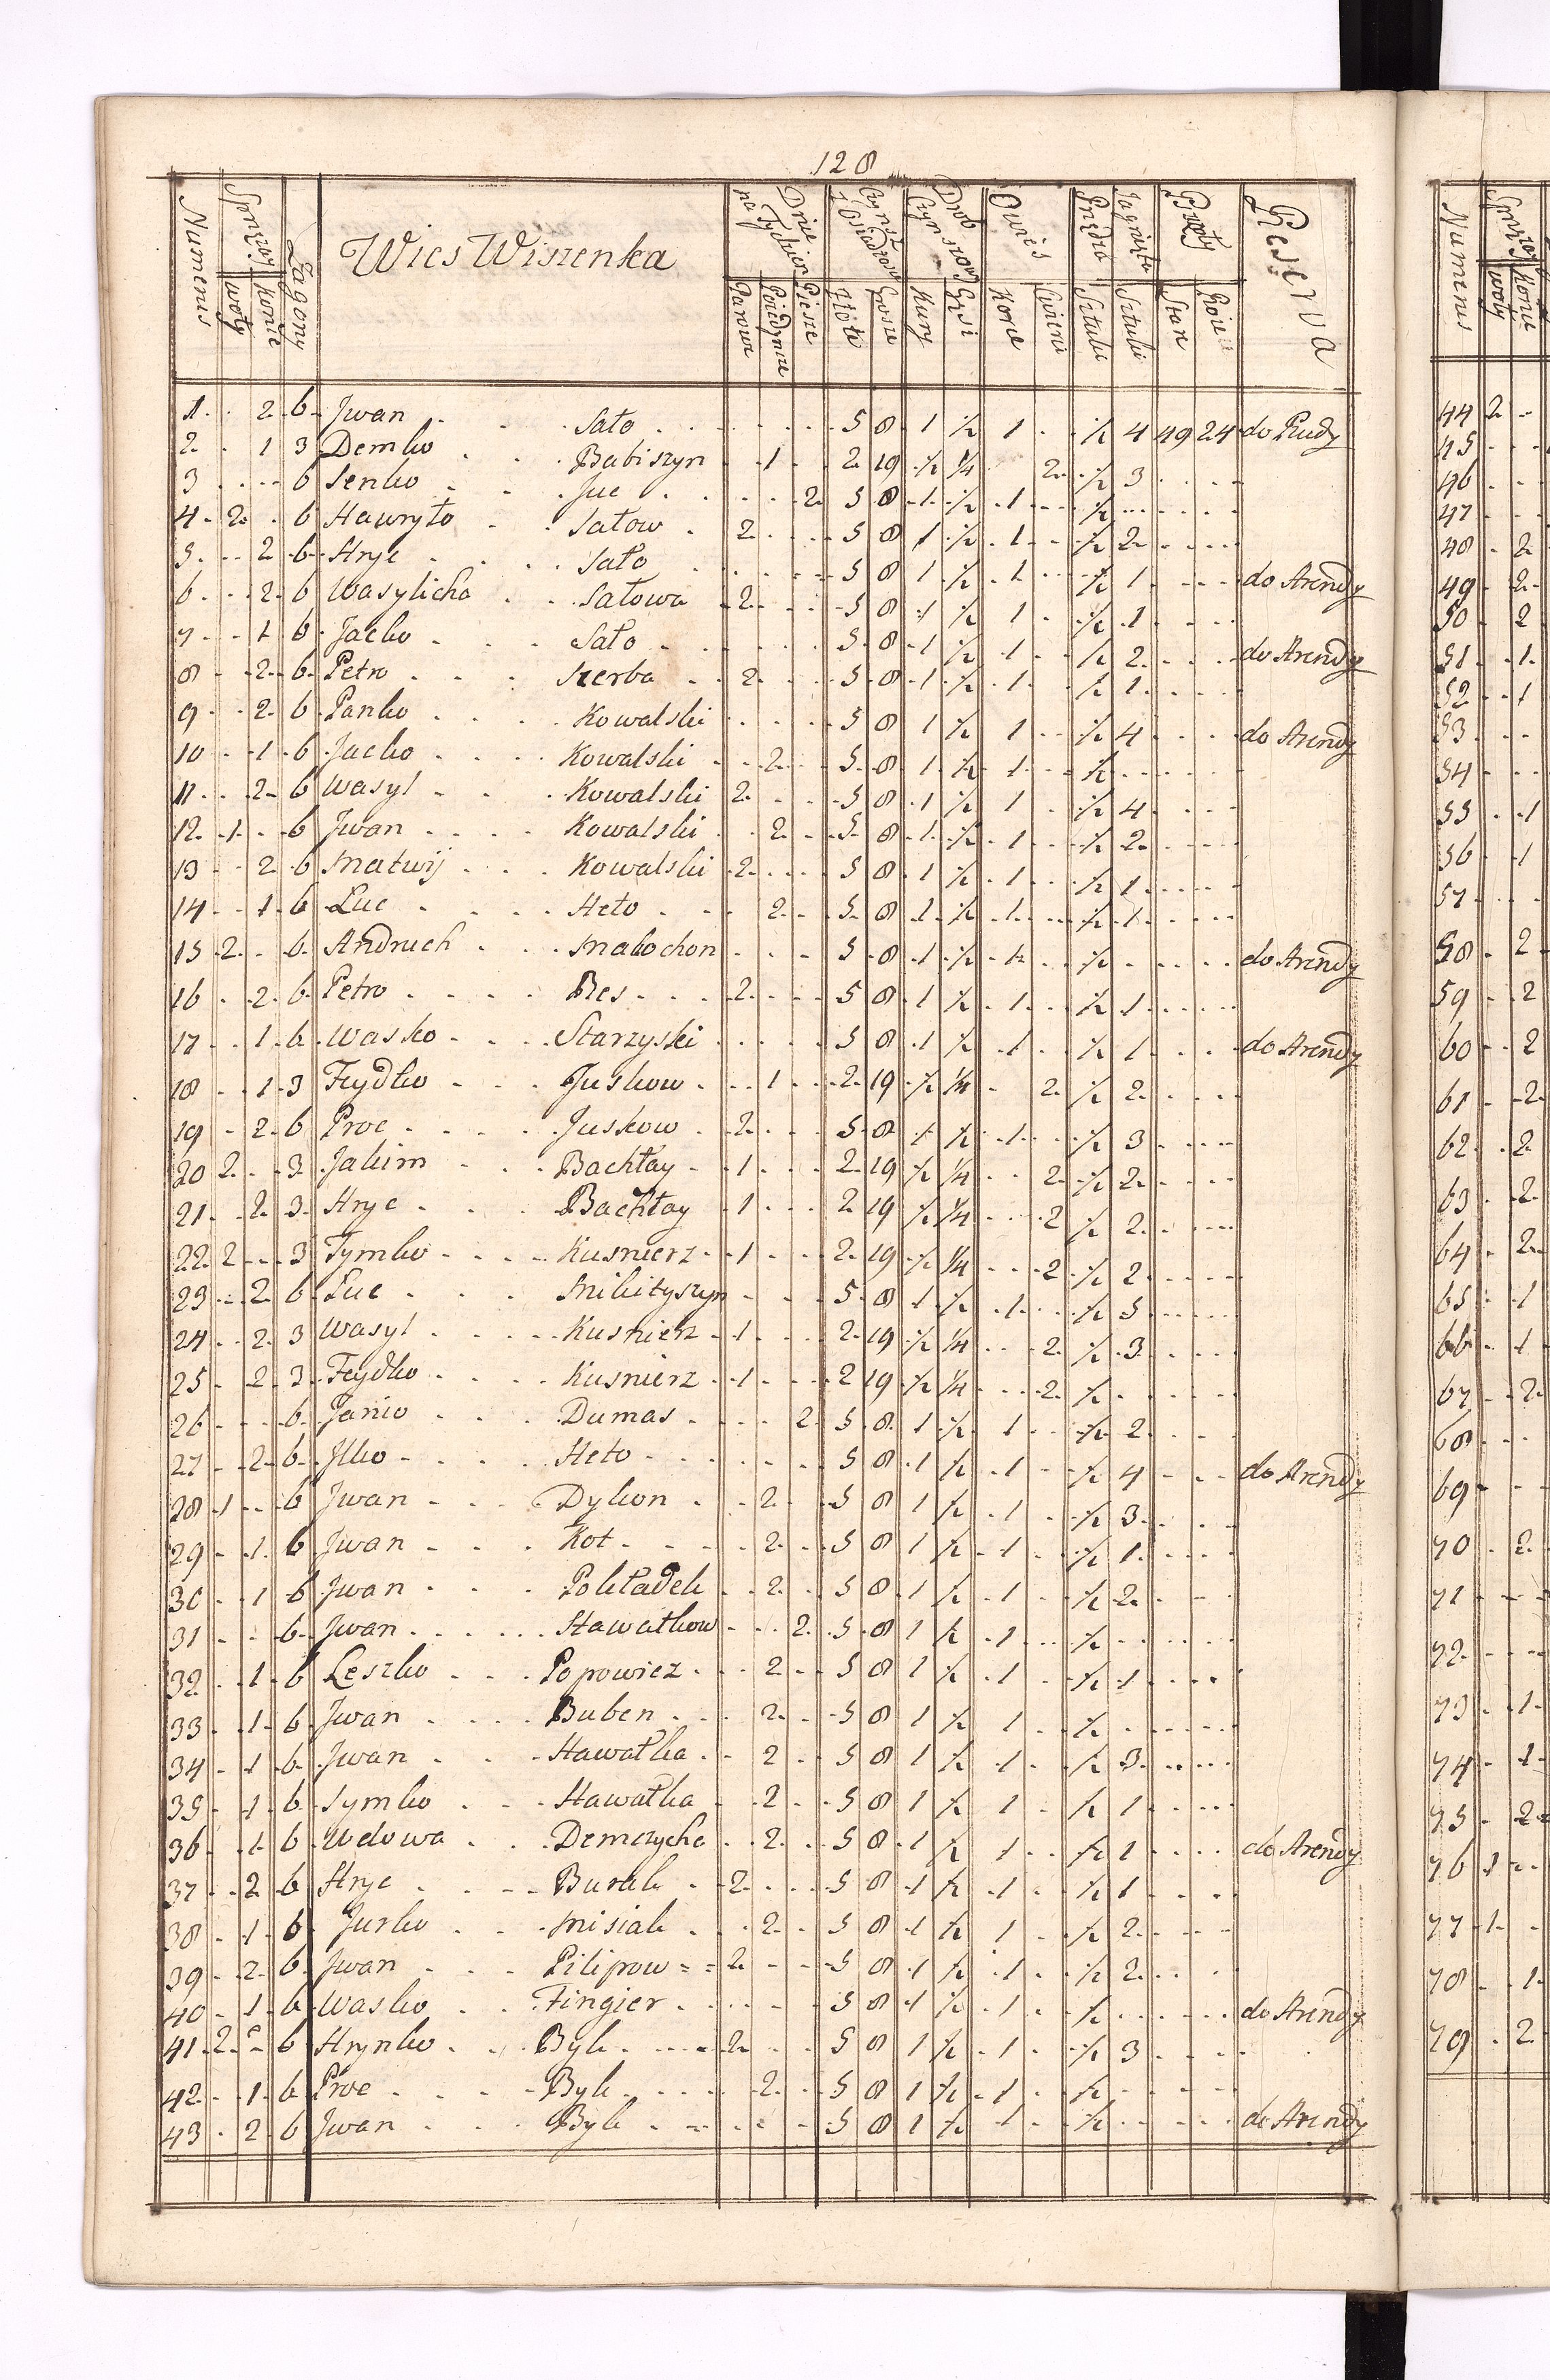 128
Numerus Sprzężay Zagony Wies Wiszenka Dnie na Tydzien Czynsz z Osiadłości Drob Czynszowy Owies Przędza Jagnięta Pszczoły Reserva
Woły Konie Parowe Poiedyncze Piesze Złote Grosze Kury Gęsi Korce Cwierci Sztuki Sztuki Stare Roie
1 2 6 Jwan Sało 5 8 1 ½ 1 ½ 4 49 24 do Rudy
2 1 3 Demko Babiszyn 1 2 19 ½ ¼ 2 ½ 3
3 6 Senko Juc 2 5 8 1 ½ 1 ½
4 2 6 Hawryło Sałow 2 5 8 1 ½ 1 ½ 2
5 2 6 Hryc Sało 5 8 1 ½ 1 ½ 1 do Arendy
6 2 6 Wasylicha Sałowa 2 5 8 1 ½ 1 ½ 1
7 1 6 Jacko Sało 5 8 1 ½ 1 ½ 2 do Arendy
8 2 6 Petro Szerba 2 5 8 1 ½ 1 ½ 1
9 2 6 Panko Kowalski 5 8 1 ½ 1 ½ 4 do Arendy
10 1 6 Jacko Kowalski 2 5 8 1 ½ 1 ½
11 2 6 Wasyl Kowalski 2 5 8 1 ½ 1 ½ 4
12 1 6 Jwan Kowalski 2 5 8 1 ½ 1 ½ 2
13 2 6 Matwij Kowalski 2 5 8 1 ½ 1 ½ 1
14 1 6 Luc Heto 2 5 8 1 ½ 1 ½ 1
15 2 6 Andruch Małochon 5 8 1 ½ 1 ½ do Arendy
16 2 6 Petro Bes 2 5 8 1 ½ 1 ½ 1
17 1 6 Wasko Starzyski 5 8 1 ½ 1 ½ 1 do Arendy
18 1 3 Feydko Juskow 1 2 19 ½ ¼ 2 ½ 2
19 2 6 Proc Juskow 2 5 8 1 ½ 1 ½ 3
20 2 3 Jakim Bachtay 1 2 19 ½ ¼ 2 ½ 2
21 2 3 Hryc Bachtay 1 2 19 ½ ¼ 2 ½ 2
22 2 3 Tymko Kusnierz 1 2 19 ½ ¼ 2 ½ 2
23 2 6 Luc Mikityszyn 5 8 1 ½ 1 ½ 5
24 2 3 Wasyl Kusnierz 1 2 19 ½ ¼ 2 ½ 3
25 2 3 Feydko Kusnierz 1 2 19 ½ ¼ 2 ½
26 6 Janio Dumas 2 5 8 1 ½ 1 ½ 2
27 2 6 Jlko Heto 5 8 1 ½ 1 ½ 4 do Arendy
28 1 6 Jwan Dykon 2 5 8 1 ½ 1 ½ 3
29 1 6 Jwan Kot 2 5 8 1 ½ 1 ½ 1
30 1 6 Jwan Pokładek 2 5 8 1 ½ 1 ½ 2
31 6 Jwan Hawatkow 2 5 8 1 ½ 1 ½
32 1 6 Leszko Popowicz 2 5 8 1 ½ 1 ½ 1
33 1 6 Jwan Buben 2 5 8 1 ½ 1 ½
34 1 6 Jwan Hawatka 2 5 8 1 ½ 1 ½ 3
35 1 6 Symko Hawatka 2 5 8 1 ½ 1 ½ 1
36 1 6 Wdowa Demczycha 2 5 8 1 ½ 1 ½ 1 do Arendy
37 2 6 Hryc Burak 2 5 8 1 ½ 1 ½ 1
38 1 6 Jurko Misiak 2 5 8 1 ½ 1 ½ 2
39 2 6 Jwan Pilipow 2 5 8 1 ½ 1 ½ 2
40 1 6 Wasko Fingier 5 8 1 ½ 1 ½ do Arendy
41 2 6 Hrynko Byk 2 5 8 1 ½ 1 ½ 3
42 1 6 Proc Byk 2 5 8 1 ½ 1 ½
43 2 6 Jwan Byk 5 8 1 ½ 1 ½ do Arendy
Numerus Sprzężay
Woły Konie
44 2
45
46
47
48 2
49 2
50 2
51 1
52 1
53
54
55 1
56 1
57
58 2
59 2
60 2
61 2
62 2
63 2
64 2
65 1
66 1
67 2
68
69
70 2
71
72
73 1
74 1
75 2
76 1
77 1
78 1
79 2